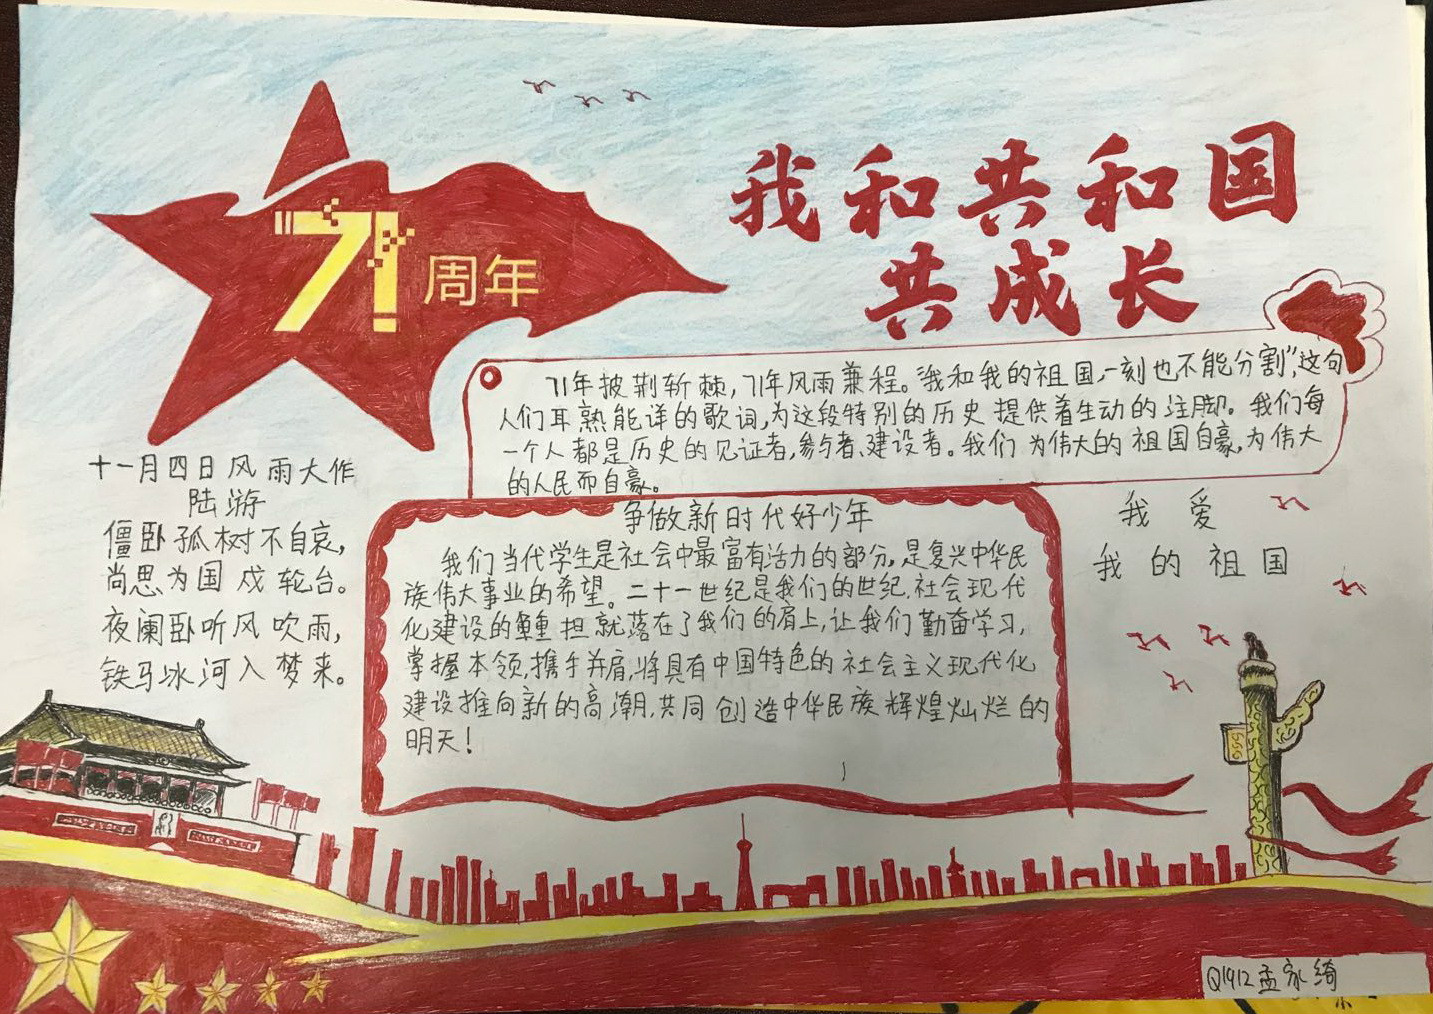 71周年
我和共和国
共成长
71年披荆斩棘,71年风雨兼程。“我和我的祖国,一刻也不能分割”,这句
人们耳熟能详的歌词,为这段特别的历史提供着生动的注脚。我们每
一个人都是历史的见证者,参与者、建设者。我们为伟大的祖国自豪,为伟大
的人民而自豪。
十一月四日风雨大作
陆游
僵卧孤树不自哀,
尚思为国戍轮台。
夜阑卧听风吹雨,
铁马冰河入梦来。
争做新时代好少年
我们当代学生是社会中最富有活力的部分,是复兴中华民
族伟大事业的希望。二十一世纪是我们的世纪,社会现代
化建设的重担就落在了我们的肩上,让我们勤奋学习,
掌握本领,携手并肩,将具有中国特色的社会主义现代化
建设推向新的高潮,共同创造中华民族辉煌灿烂的
明天!
我爱
我的祖国
Q1912孟家绮